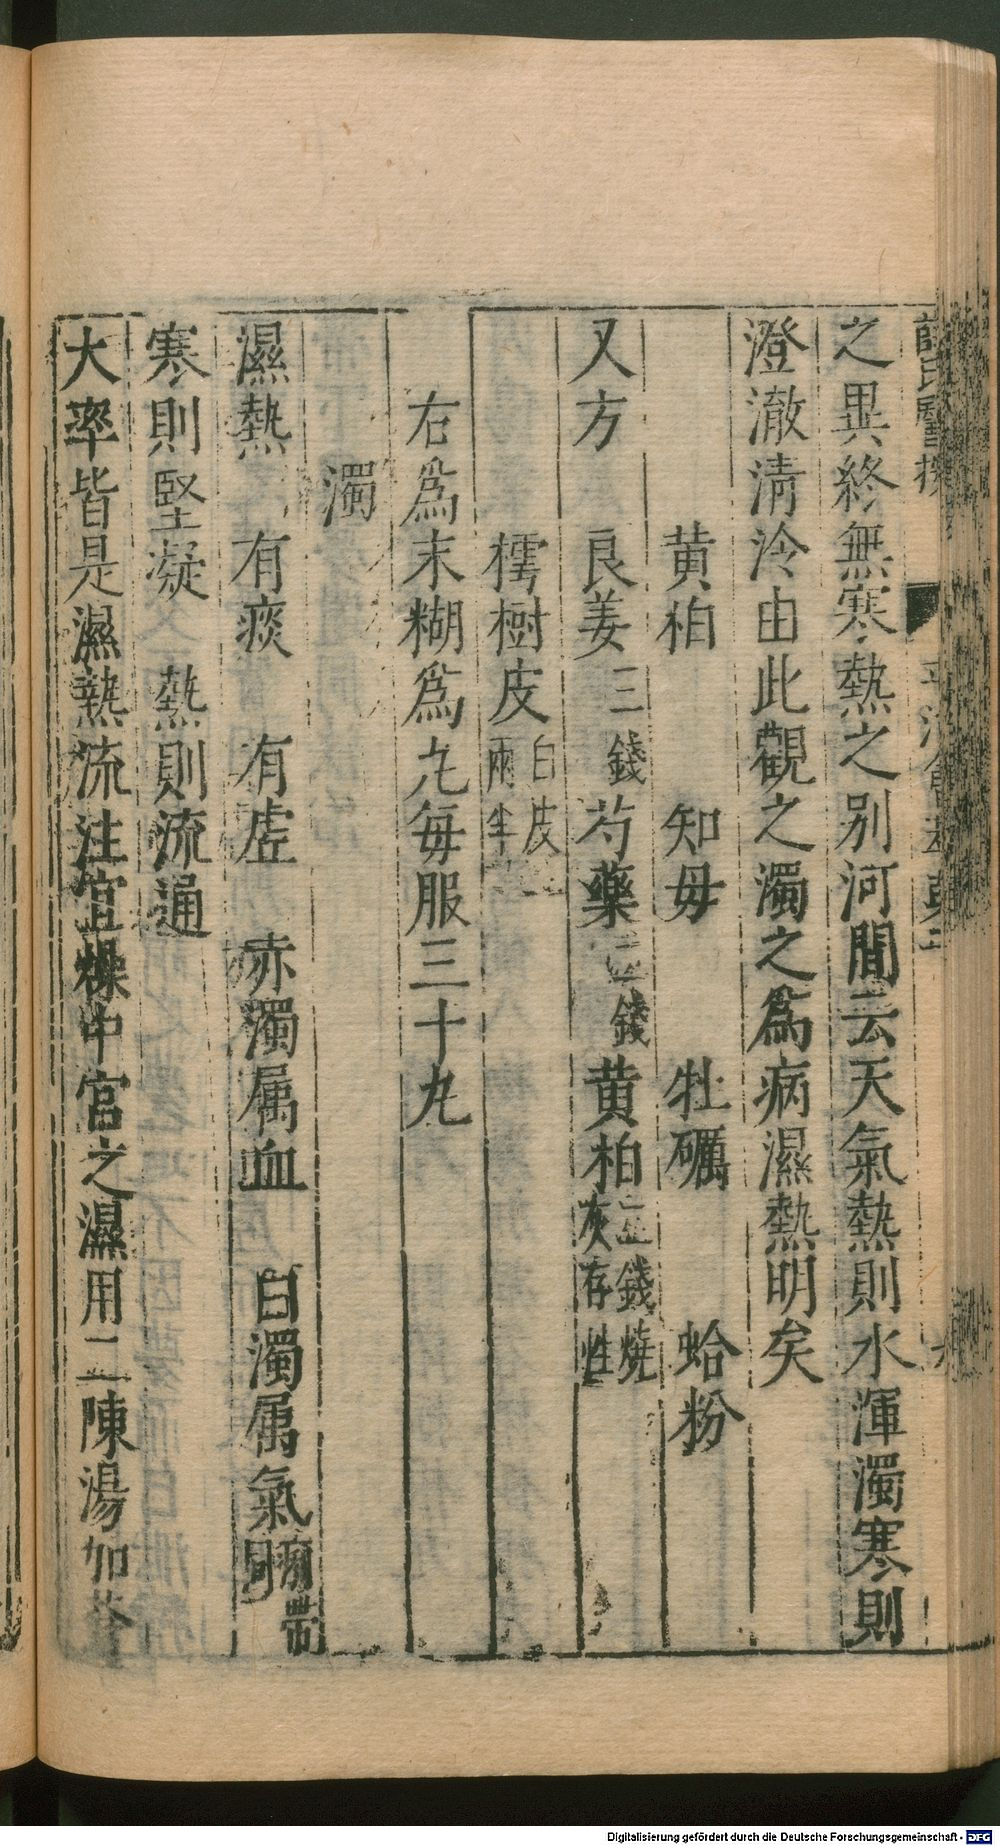 薛氏醫按
之異終無寒熱之别河間云天氣熱則水渾濁寒則
澄澈清冷由此觀之濁之爲病濕熱明矣
黄柏 知母 牡礪 蛤粉
又方 良姜三錢 芍藥二錢 黄柏二錢燒灰存性
樗樹皮白皮一兩半
右爲末糊爲丸每服三十丸
濁
濕熱 有痰 有虚 赤濁属血 白濁属氣痢帶同
寒則堅凝 熱則流通
大率皆是濕熱流注宜燥中宫之濕用二陳湯加苍
Digitalisierung gefördert durch die Deutsche Forschungsgemeinschaft - DFG